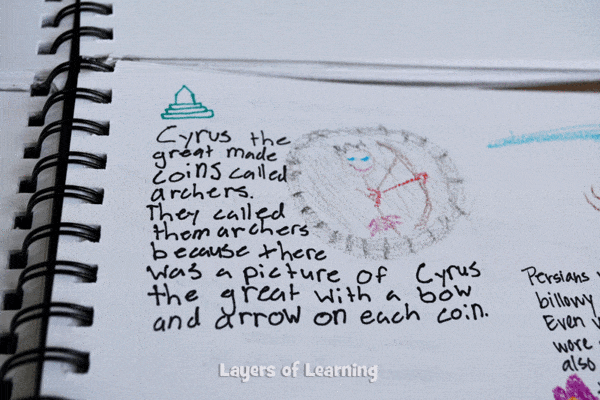 Cyrus the
great made
coins called
archers.
They called
them archers
because there
was a picture of Cyrus
the great with a bow
and arrow on each coin.
Persians
billowy
Even
wore
also
Layers of Learning